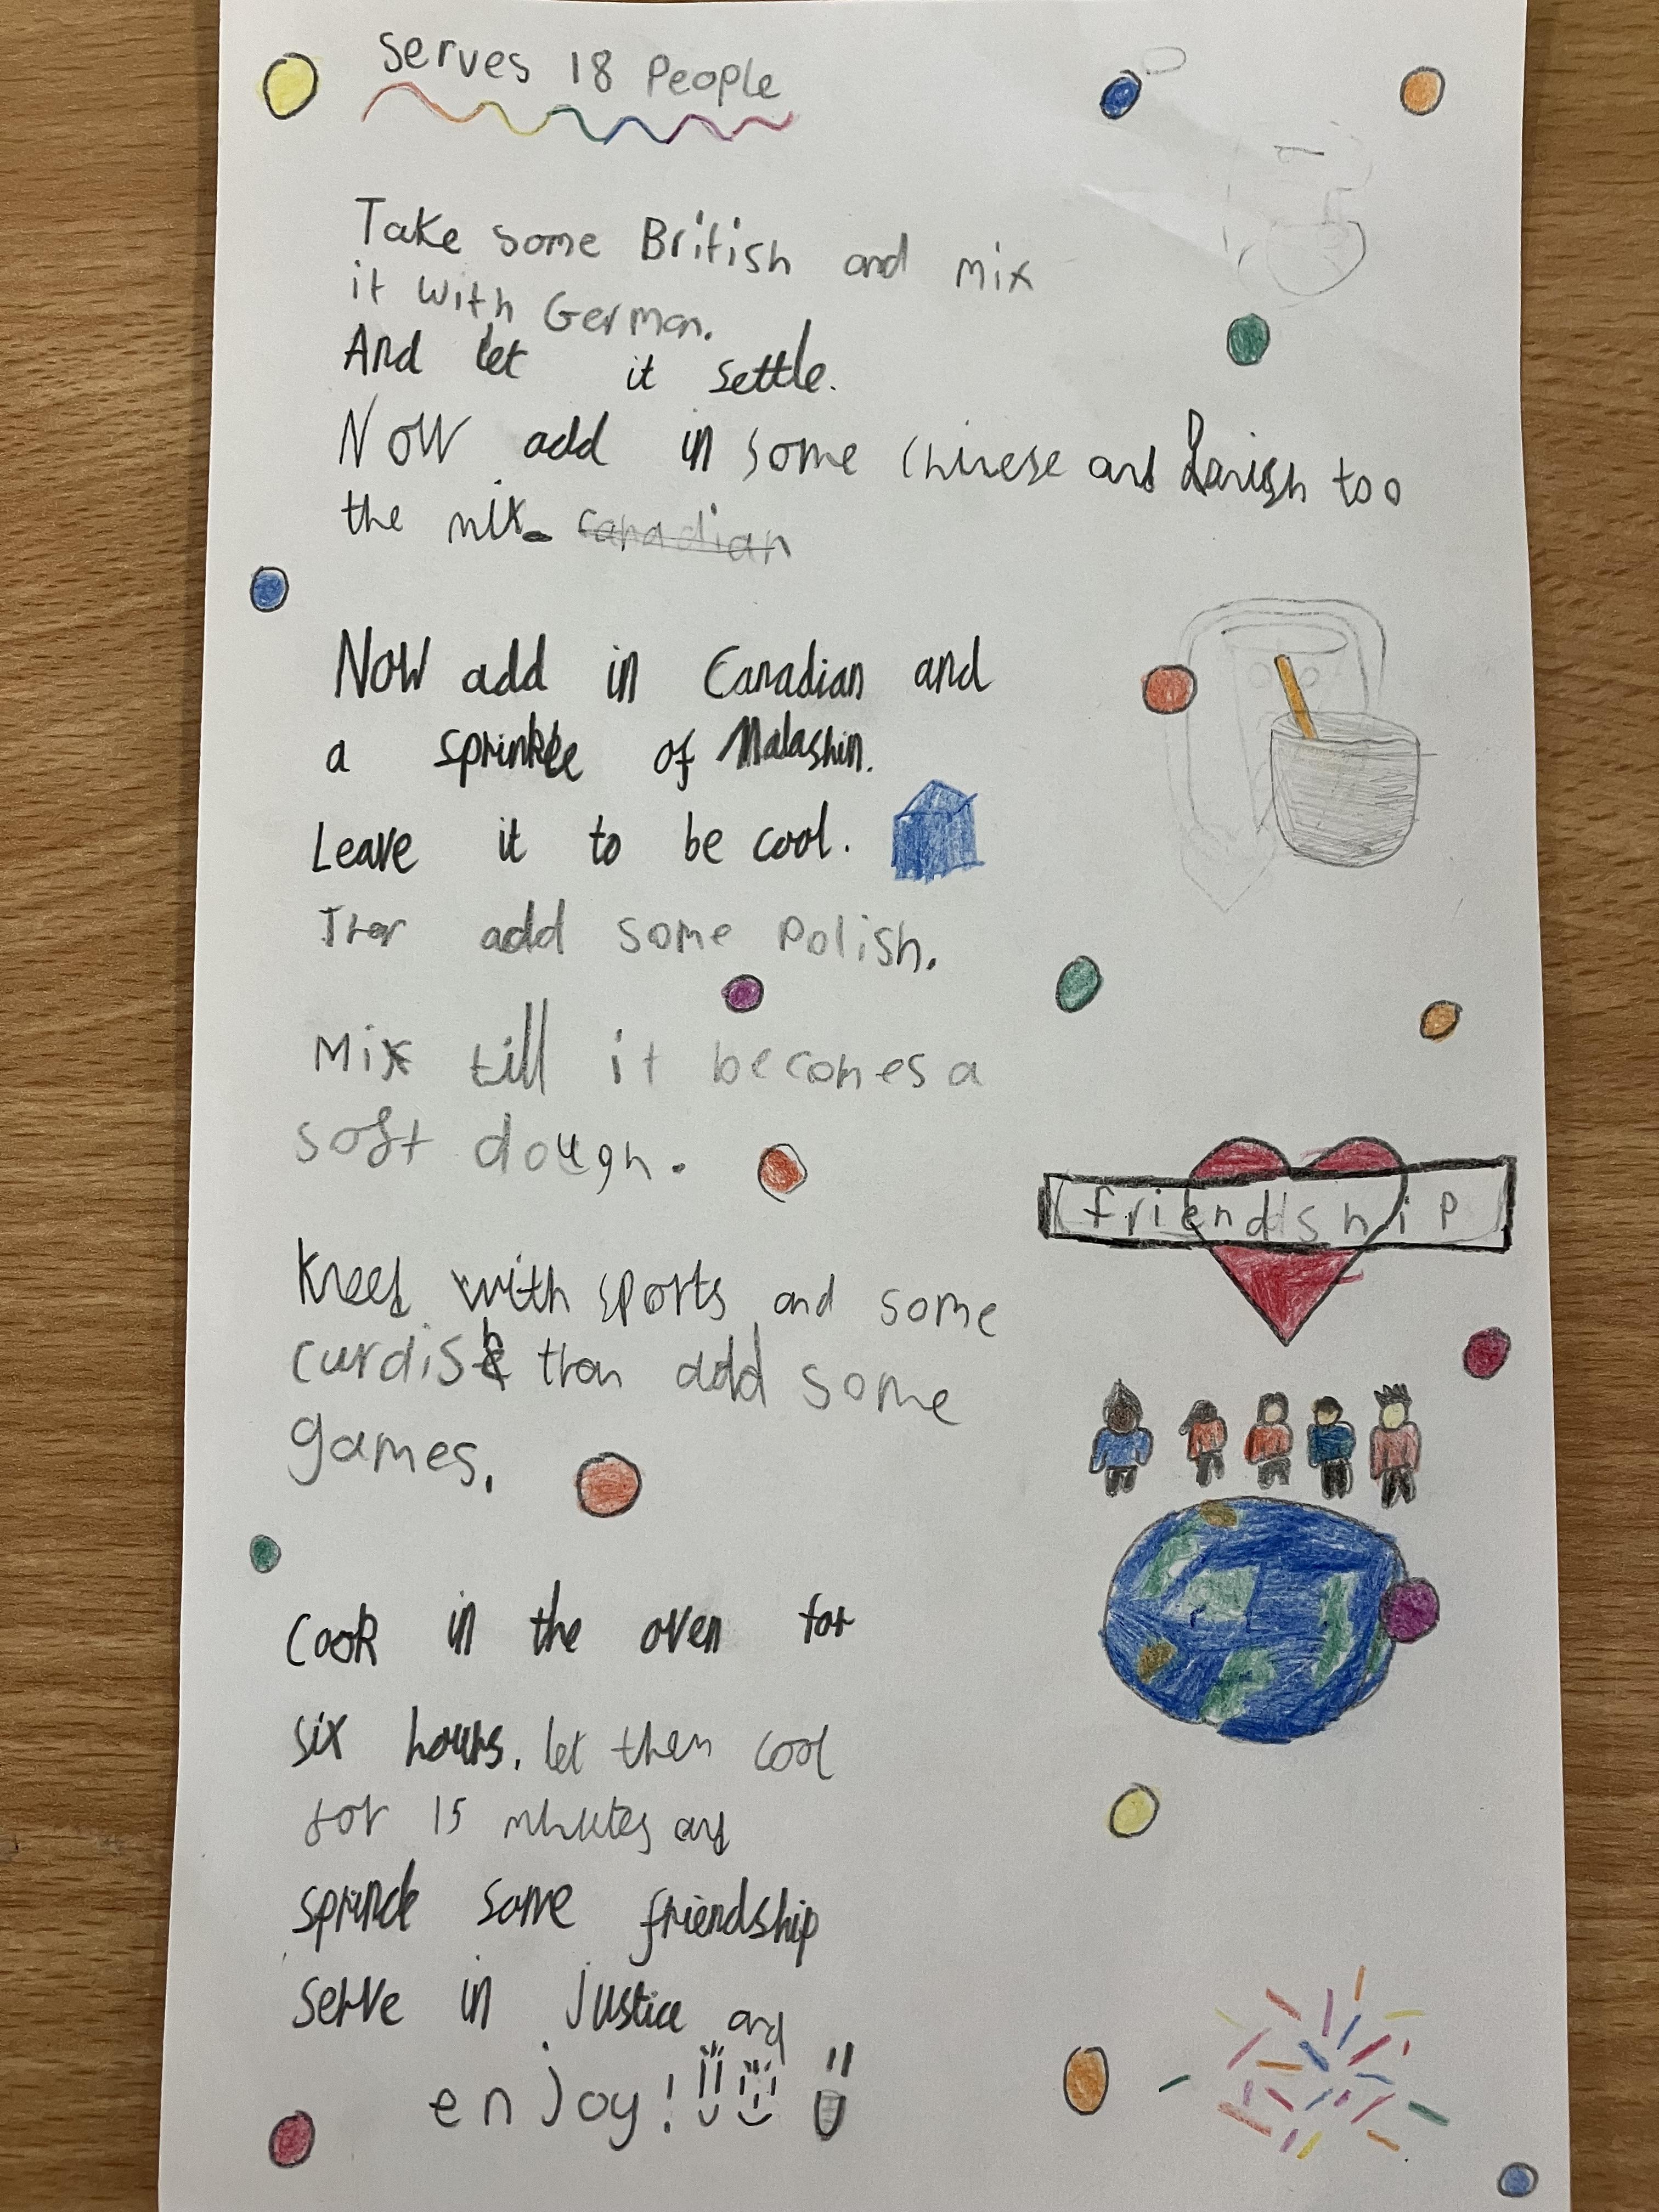 serves 18 People
Take some British and mix
it with German.
And let it settle.
Now add in some chinese and Danish too
the mix. canadian
Now add in Canadian and
a sprinkle of Malashin.
Leave it to be cool.
Then add some Polish.
Mix till it becomes a
soft dough.
friendship
Kneed with sports and some
curdish then add some
games.
Cook in the oven for
six hours. let then cool
for 15 minutes and
sprincle some friendship
serve in justice and
enjoy!